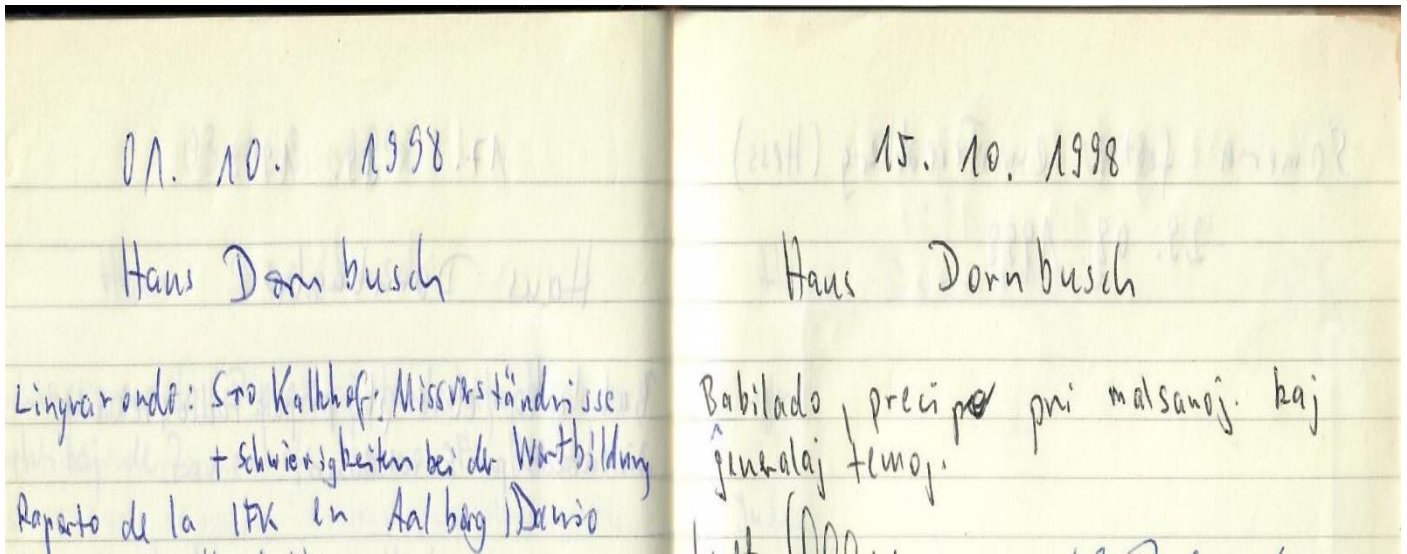 01. 10. 1998
Haus Dornbusch
Lingvarondo: Sro Kalkhof: Missverständnisse
+ Schwierigkeiten bei der Wortbildung
Raporto de la IFK en Aalborg / Danio
15. 10. 1998
Haus Dornbusch
Babilado, precipe pri malsanoj. kaj
ĝeneralaj temoj.